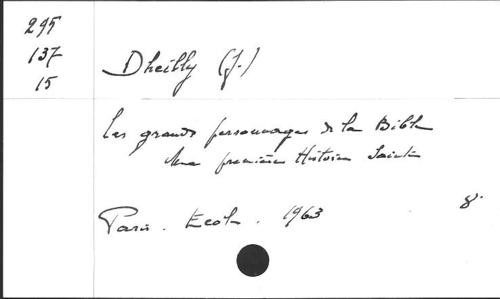 295
137
15
Dheilly (J.)
Les grands personnages de la Bible
Une première Histoire Sainte
Paris. Ecole. 1963 8°